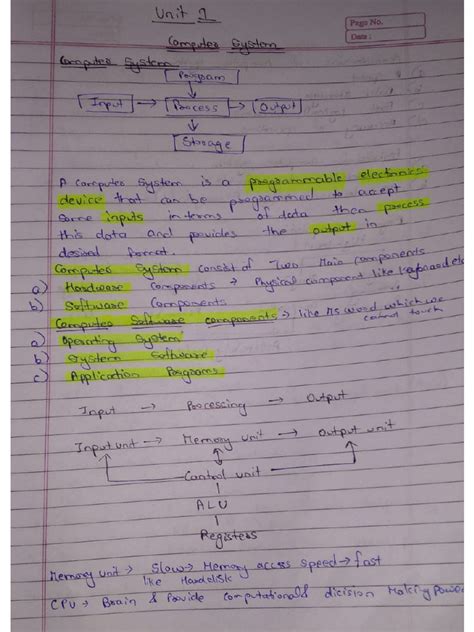 Unit 1
Page No.
Date:
Computer System
Computer System
Program
Input → Process → Output
Storage
A computer System is a programmable electronics
device that can be programmed to accept
Some inputs in terms of data then process
this data and provides the output in
desired format.
Computer System consist of Two Main components
a) Hardware Components → Physical component like Keyboard etc
b) Software Components
Computer Software components → like MS word which we
cannot touch
a) Operating System
b) System Software
c) Application Programs
Input → Processing → Output
Input unit → Memory unit → Output unit
Control unit
ALU
Registers
Memory unit → Slow → Memory access speed → fast
like Harddisk
CPU → Brain & Provide computational & dicision Making power